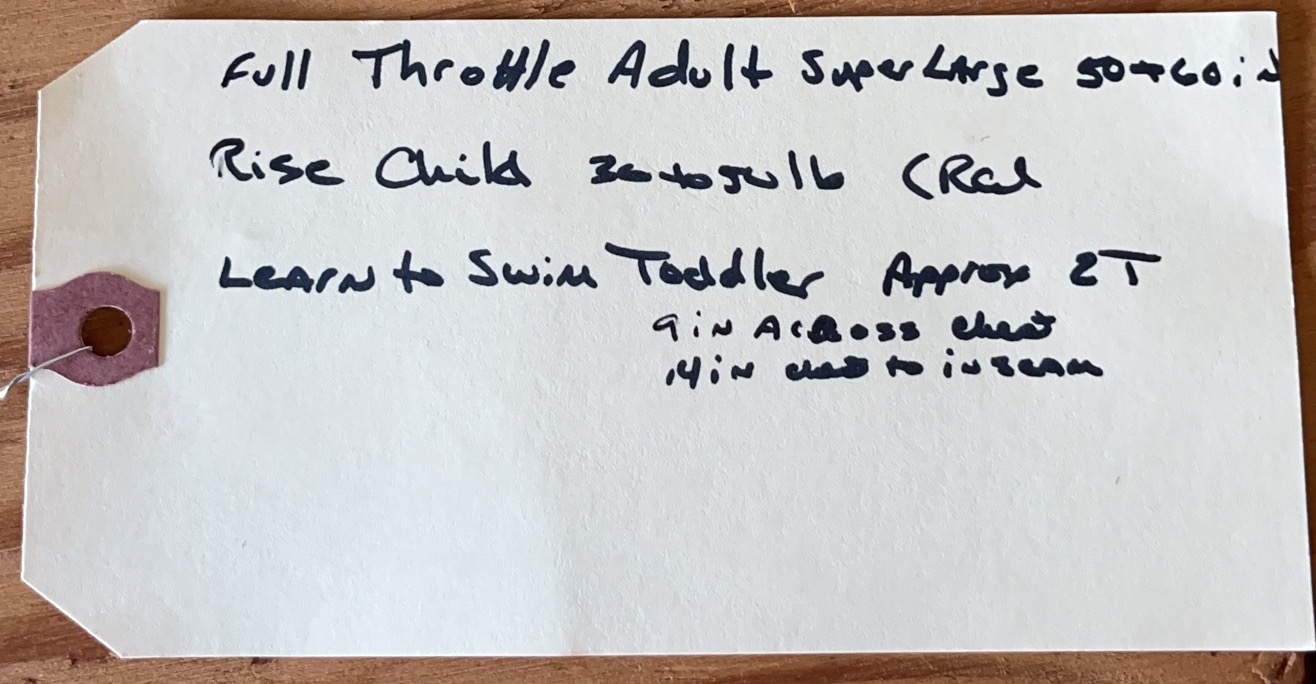 Full Throttle Adult Super Large 50to60in
Rise Child 30to50lb (Red
Learn to Swim Toddler Approx 2T
9in Across chest
14in chest to inseam